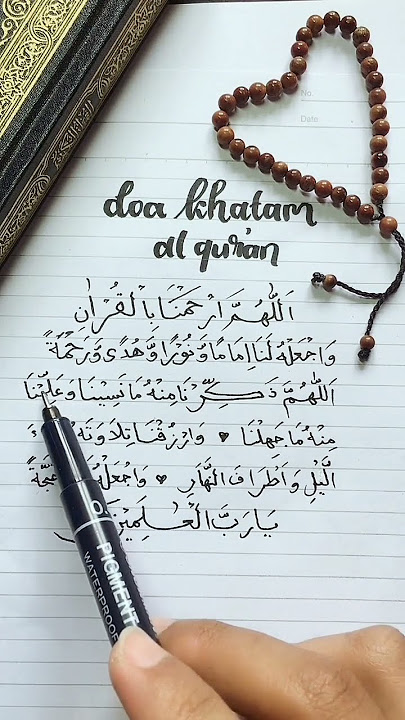 No.
Date
doa khatam
al qur'an
اَللّٰهُمَّ ارْحَمْنَا بِالْقُرْاٰنِ
وَاجْعَلْهُ لَنَا اِمَامًا وَنُوْرًا وَهُدًى وَرَحْمَةً
اَللّٰهُمَّ ذَكِّرْنَا مِنْهُ مَا نَسِيْنَا وَعَلِّمْنَا
مِنْهُ مَا جَهِلْنَا وَارْزُقْنَا تِلَاوَتَهُ
الَّيْلِ وَاَطْرَافَ النَّهَارِ وَاجْعَلْهُ حُجَّةً
يَارَبَّ الْعٰلَمِيْنَ
PIGMENT
WATERPROOF